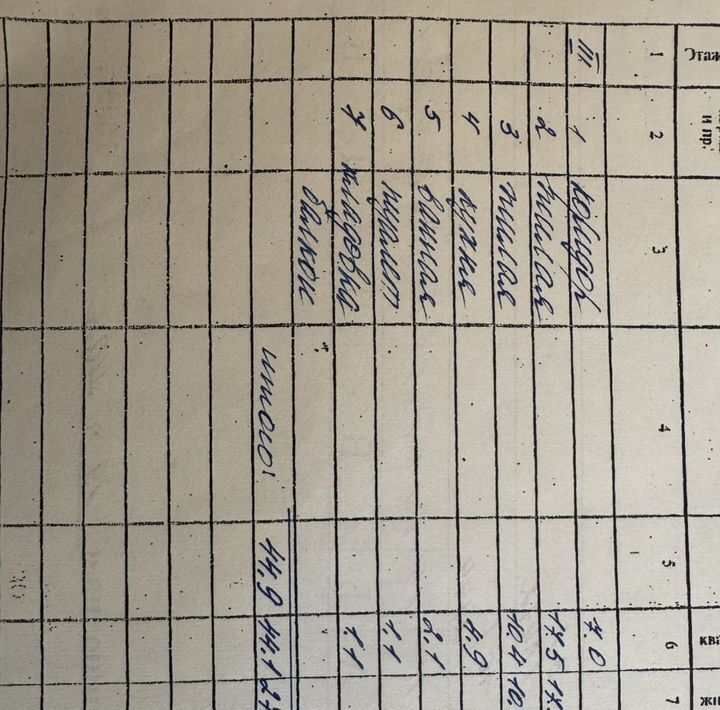 Этаж и пр. ква жи
1 2 3 4 5 6 7
III. 1 коридор 7.0
2 жилая 17.5 17.
3 жилая 10.4 10.
4 кухня 4.9
5 ванная 2.1
6 туалет 1.1
7 кладовка 1.1
балкон
итого: 44,9 44.1 27